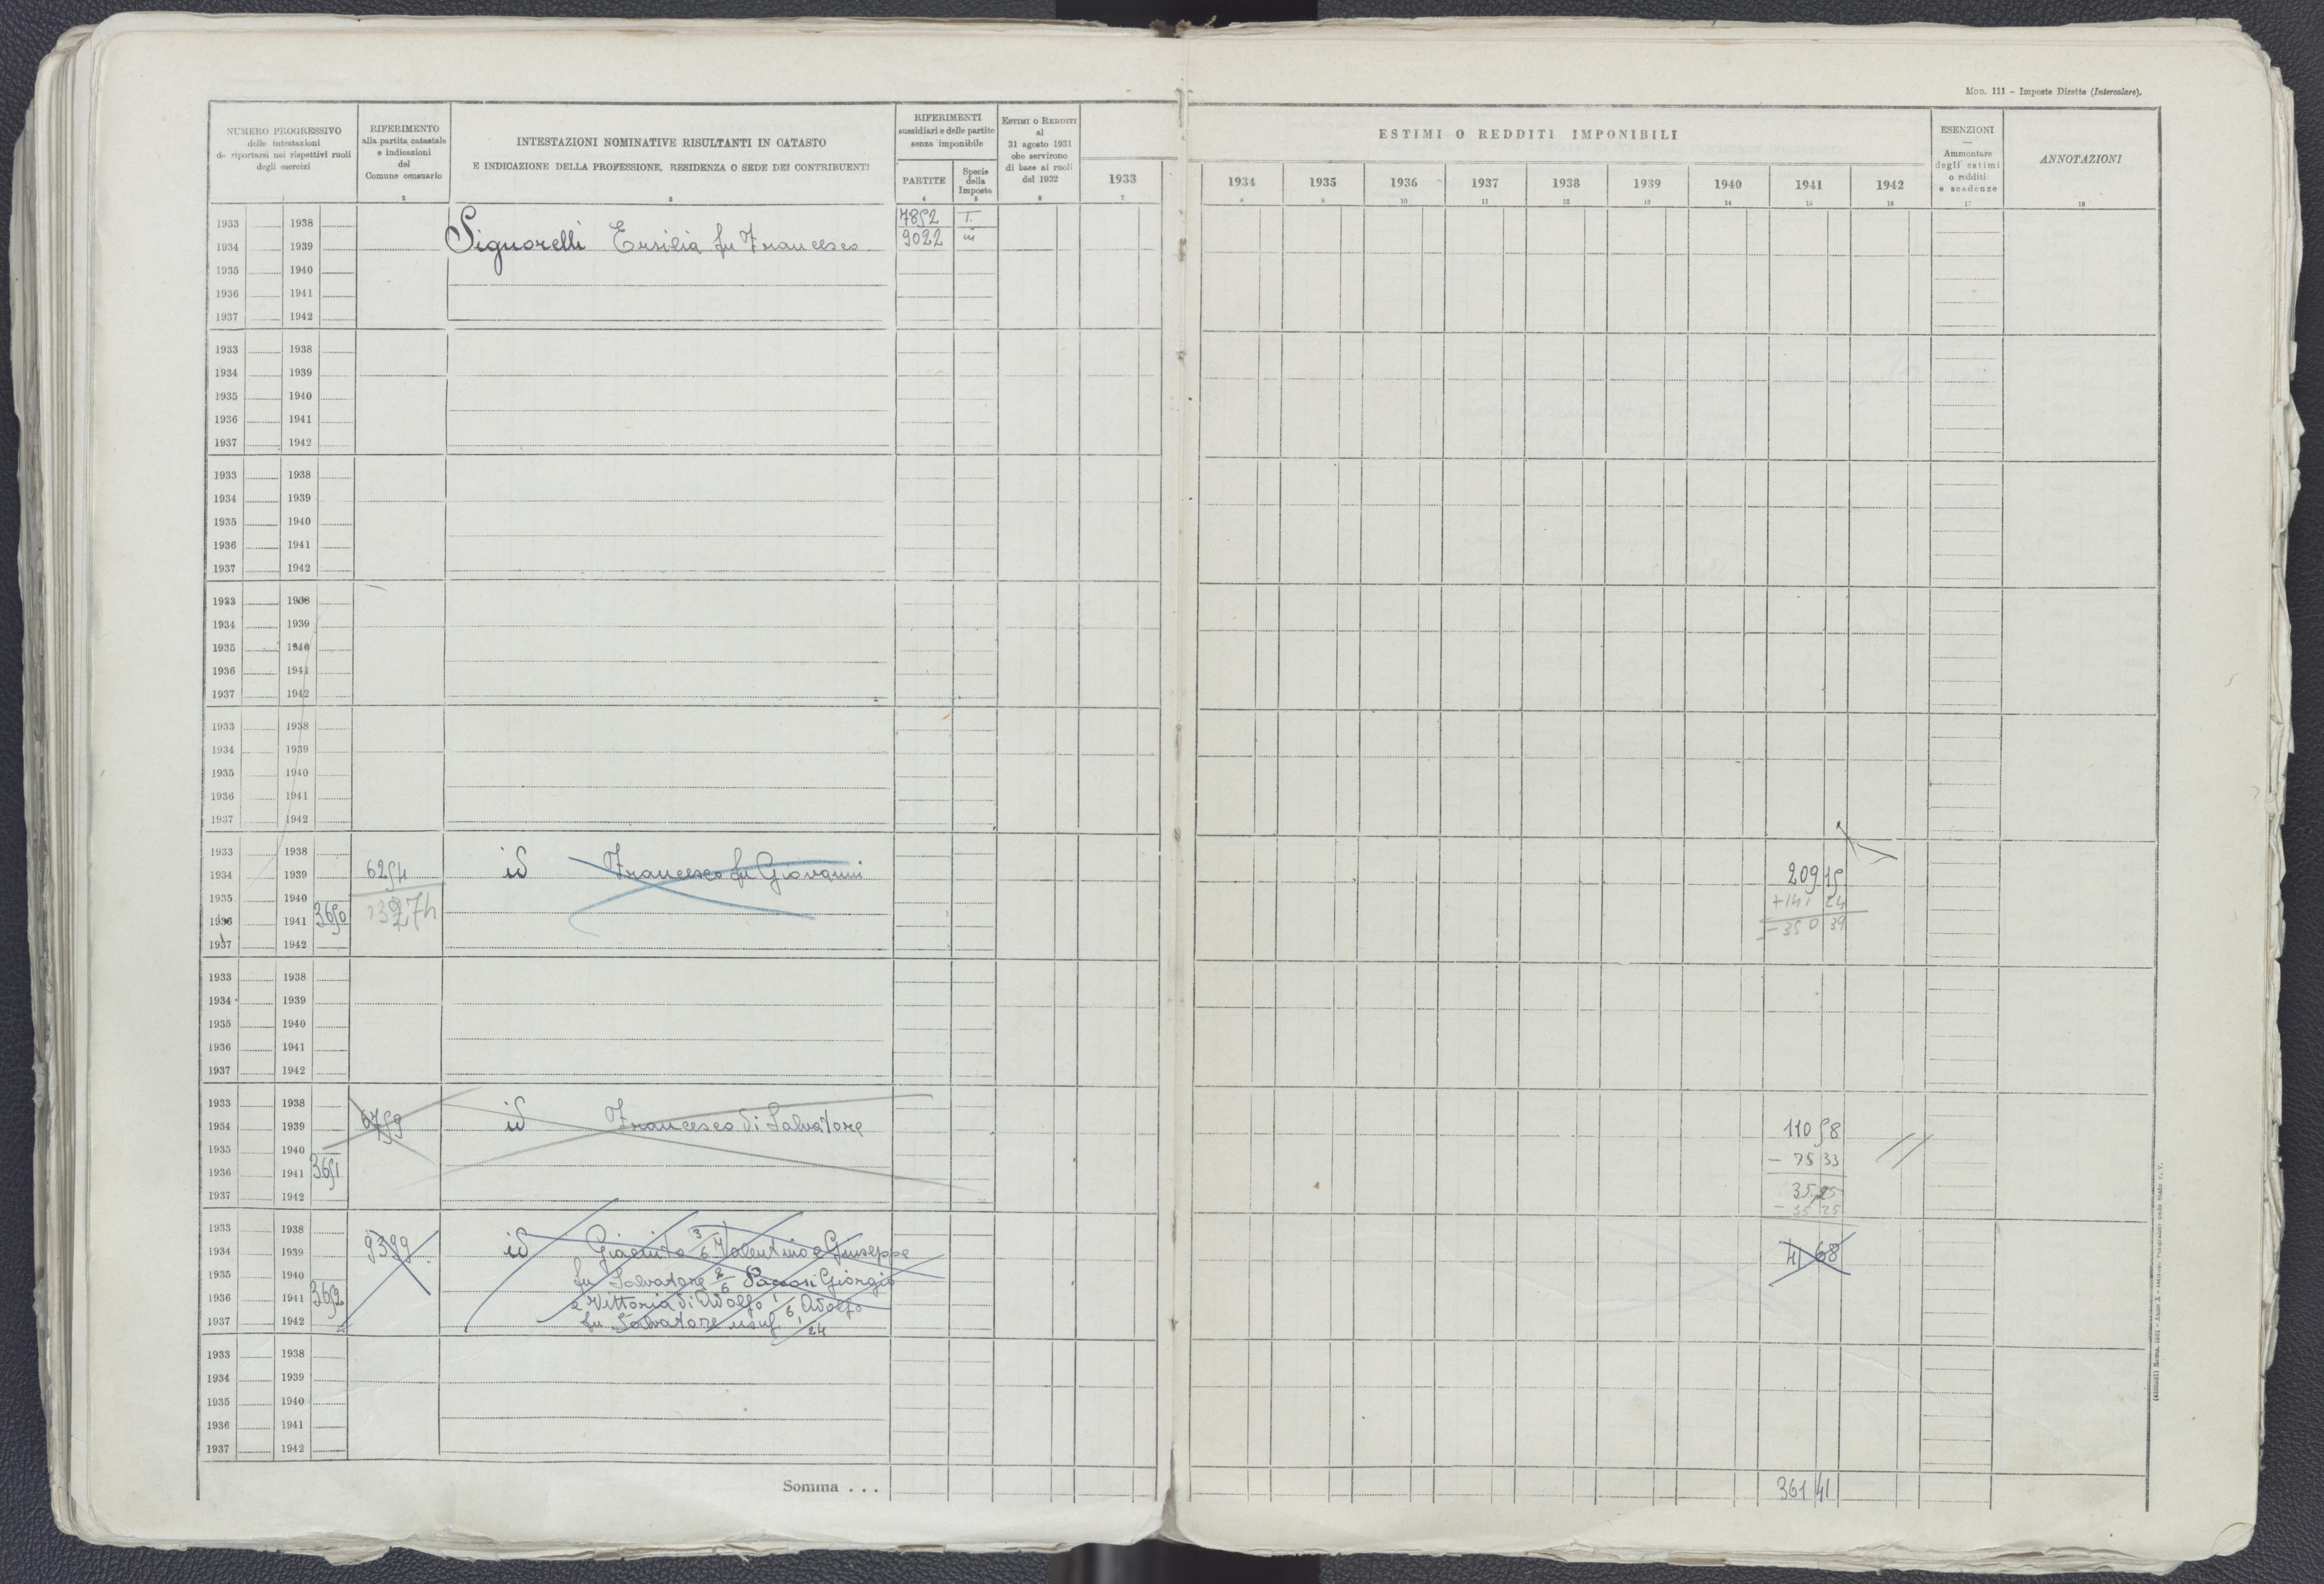 Mod. 111 - Imposte Dirette (Intercalare).
NUMERO PROGRESSIVO
delle intestazioni
da riportarsi nei rispettivi ruoli
degli esercizi
1
RIFERIMENTO
alla partita catastale
e indicazioni
del
Comune censuario
2
INTESTAZIONI NOMINATIVE RISULTANTI IN CATASTO
E INDICAZIONE DELLA PROFESSIONE, RESIDENZA O SEDE DEI CONTRIBUENTI
3
RIFERIMENTI
sussidiari e delle partite
senza imponibile
PARTITE
4
Specie
della
Imposta
5
ESTIMI O REDDITI
al
31 agosto 1931
che servirono
di base ai ruoli
del 1932
6
ESTIMI O REDDITI IMPONIBILI
1933 1934 1935 1936 1937 1938 1939 1940 1941 1942
7 8 9 10 11 12 13 14 15 16
ESENZIONI
Ammontare
degli estimi
o redditi
e scadenze
17
ANNOTAZIONI
18
1933 1938 7852 T.
1934 1939 Signorelli Ersilia fu Francesco 9022 id
1935 1940
1936 1941
1937 1942
1933 1938
1934 1939
1935 1940
1936 1941
1937 1942
1933 1938
1934 1939
1935 1940
1936 1941
1937 1942
1933 1938
1934 1939
1935 1940
1936 1941
1937 1942
1933 1938
1934 1939
1935 1940
1936 1941
1937 1942
1933 1938
1934 1939 6254 id Francesco fu Giovanni 209 15
1935 1940 +141 24
1936 1941 3650 350 39
1937 1942
1933 1938
1934 1939
1935 1940
1936 1941
1937 1942
1933 1938
1934 1939 6759 id Francesco di Salvatore 110 58
1935 1940 - 75 33
1936 1941 3651 35 25
1937 1942 - 35 25
1933 1938
1934 1939 9399 id Giacinto 3/6 Valentino e Giuseppe 41 68
1935 1940 fu Salvatore 2/6 Giorgio
1936 1941 3652 e Vittoria di Adolfo 1/6 Adolfo
1937 1942 fu Salvatore usuf. 1/24
1933 1938
1934 1939
1935 1940
1936 1941
1937 1942
Somma . . . 361 41